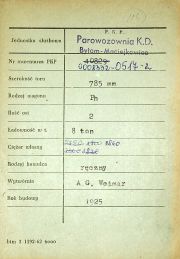 P. K. P.
Jednostka służbowa
Parowozownia K.D.
Bytom-Maciejkowice
Nr inwentarza PKP
0517-2
Szerokość toru
785 mm
Rodzaj wagonu
Ph
Ilość osi
2
Ładowność w t
8 ton
Ciężar własny
Rodzaj hamulca
ręczny
Wytwórnia
A.G. Weimar
Rok budowy
1925